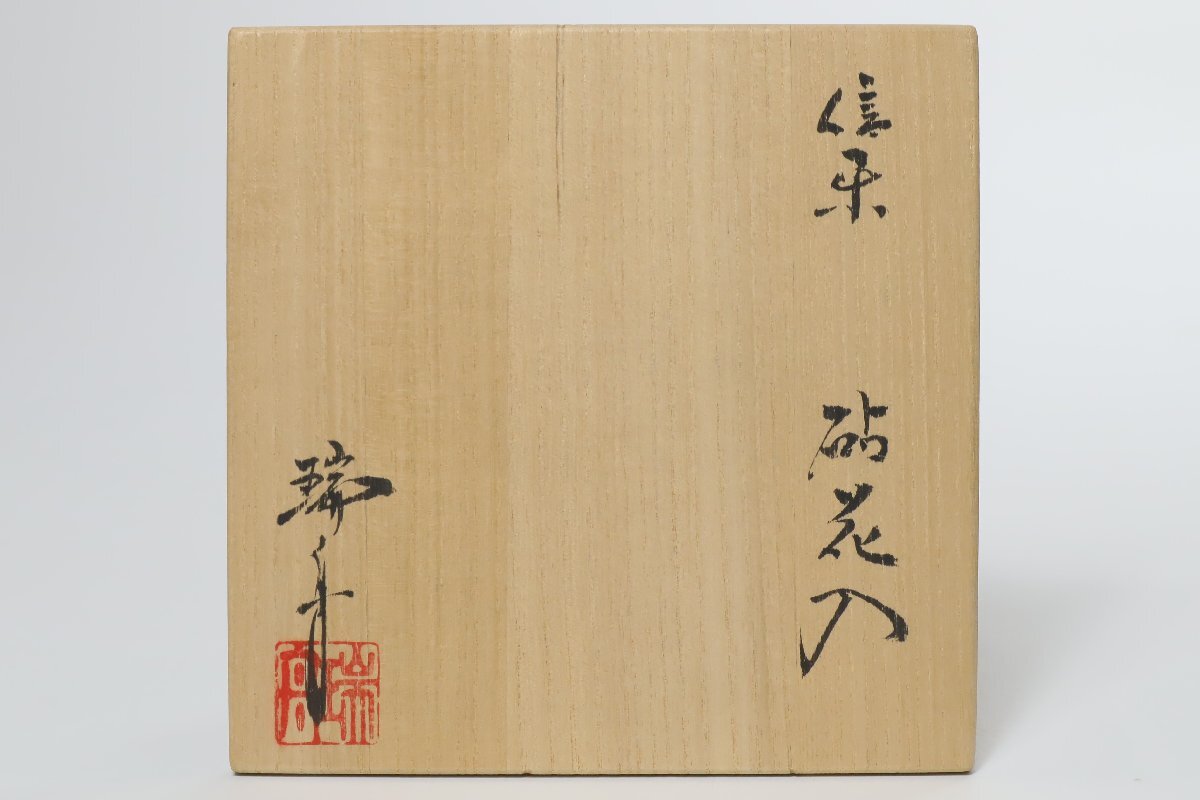 信楽 砧花入
瑞